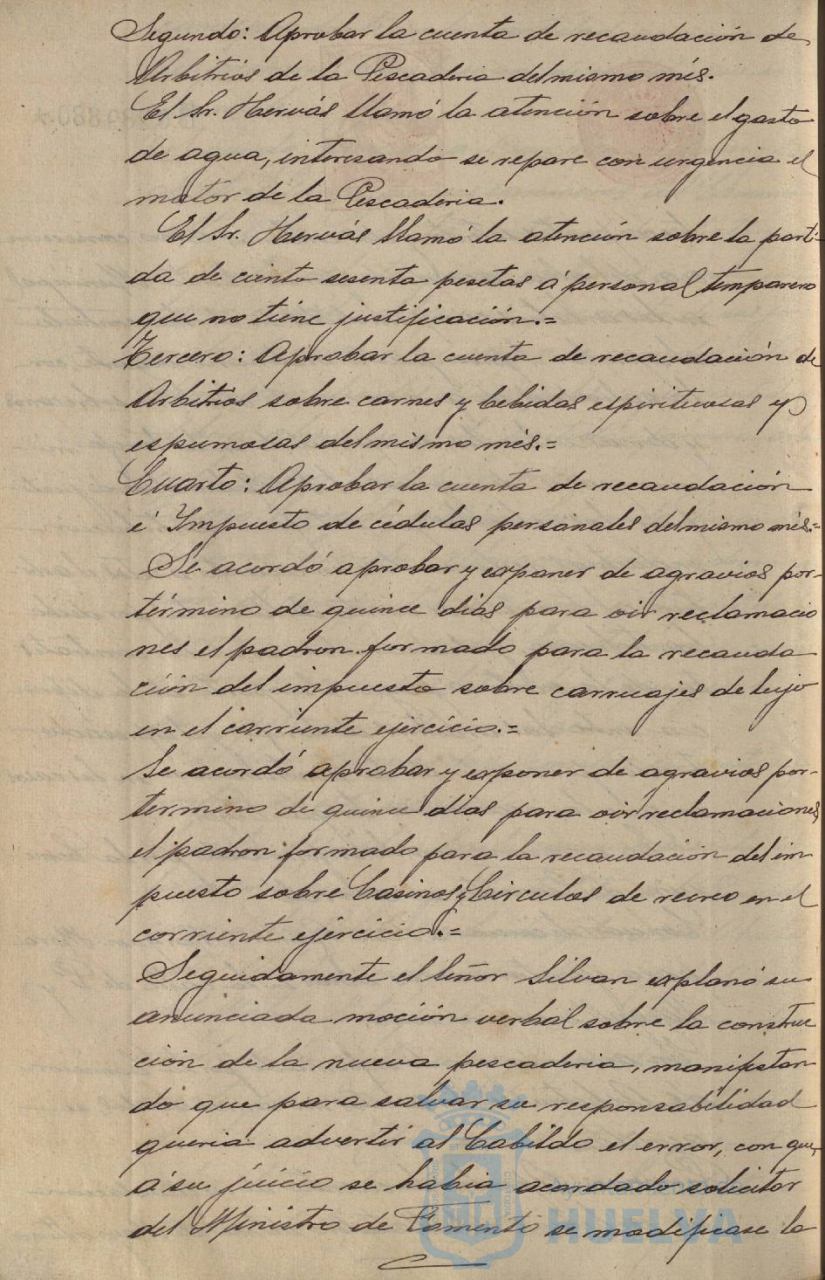 Segundo: Aprobar la cuenta de recaudación de
Arbitrios de la Pescaderia del mismo més.
El Sr. Hervás llamó la atención sobre el gasto
de agua, interesando se repare con urgencia el
motor de la Pescaderia.
El Sr. Hervás llamó la atención sobre la parti-
da de ciento sesenta pesetas á personal temporero
que no tiene justificación.=
Tercero: Aprobar la cuenta de recaudación de
Arbitrios sobre carnes y bebidas espirituosas y
espumosas del mismo més.=
Cuarto: Aprobar la cuenta de recaudación
é Impuesto de cédulas personales del mismo més.=
Se acordó aprobar y exponer de agravios por-
término de quince dias para oir reclamacio
nes el padron formado para la recauda
ción del impuesto sobre carruajes de lujo
en el corriente ejercicio.=
Se acordó aprobar y exponer de agravios por-
termino de quince dias para oir reclamaciones,
el padron formado para la recaudación del im
puesto sobre Casinos y Circulos de recreo en el
corriente ejercicio.=
Seguidamente el Señor Silvan explanó su
anunciada moción verbal sobre la construc
ción de la nueva pescaderia, manifestan-
do que para salvar su responsabilidad
queria advertir al Cabildo el error, con que,
á su juicio se habia acordado solicitar
del Ministro de Fomento se modificase la
HUELVA